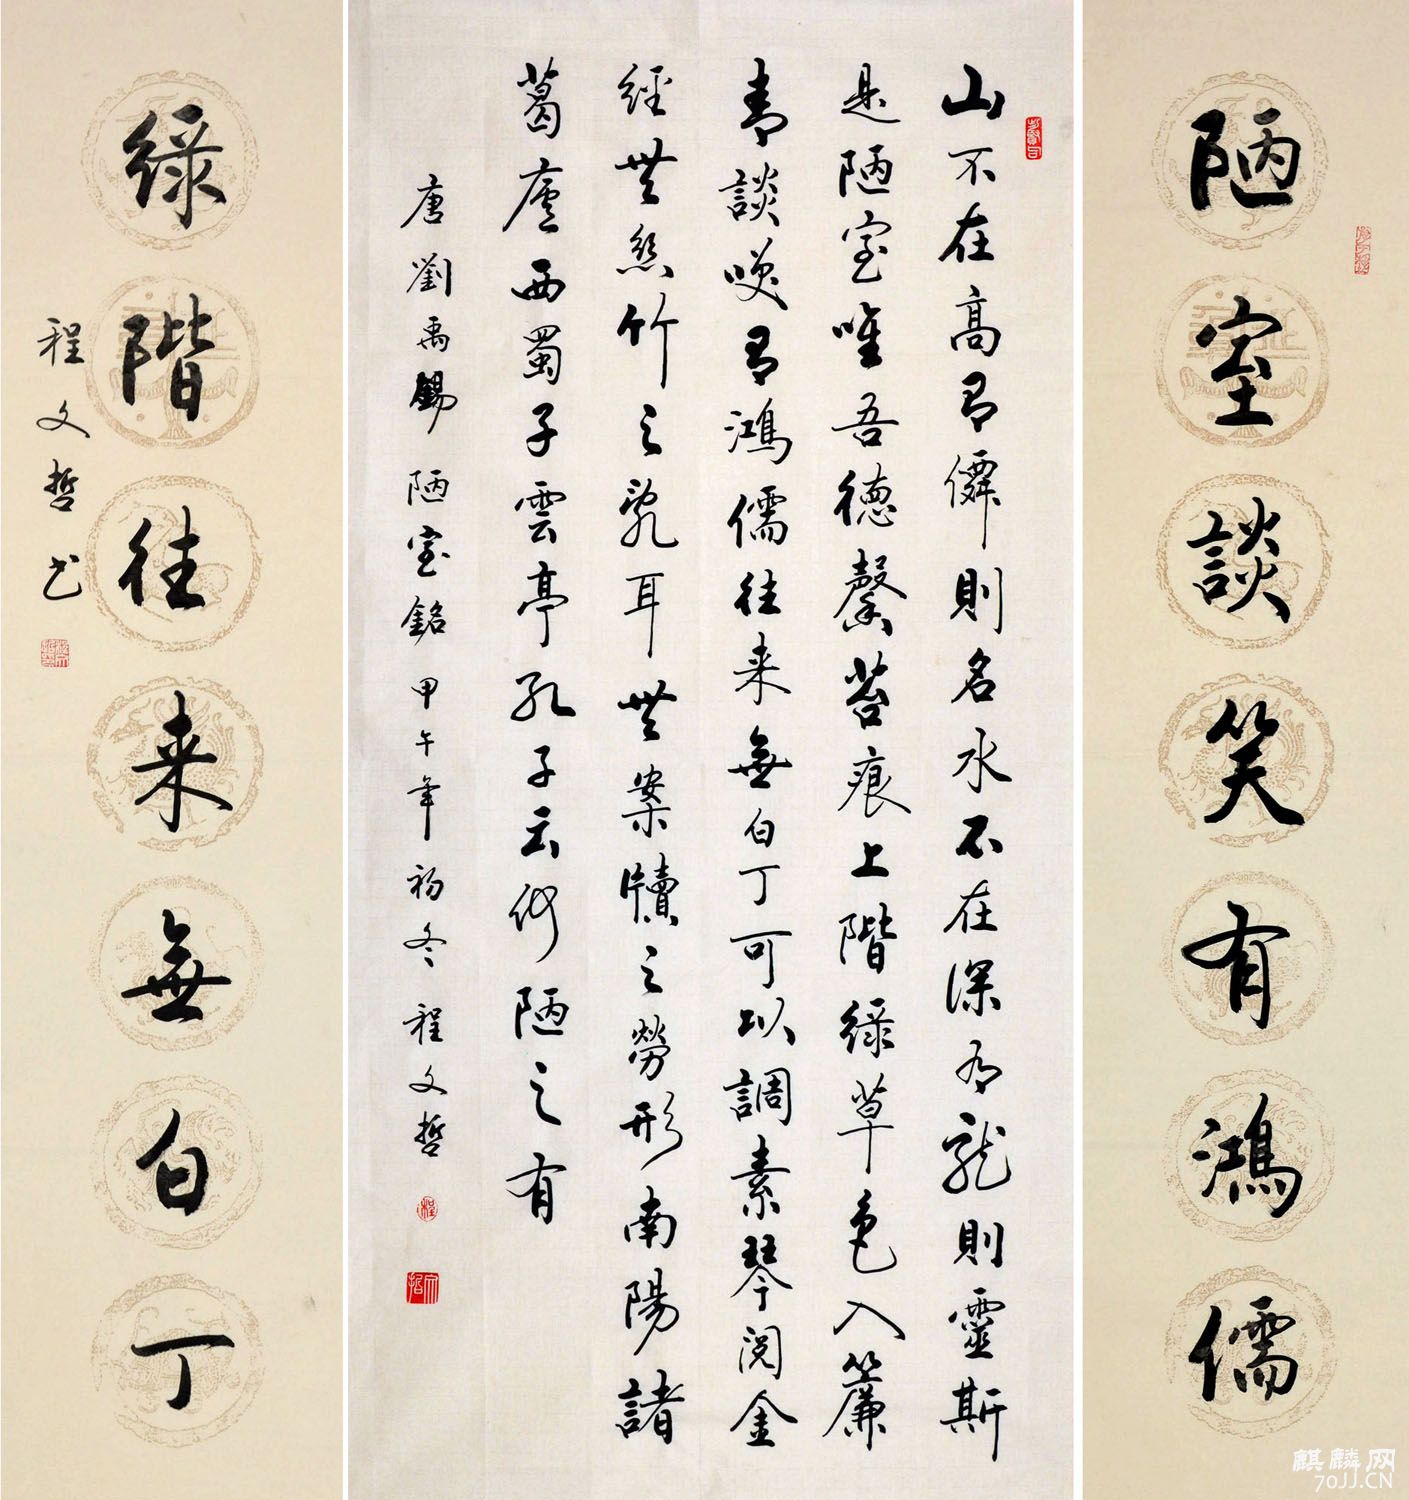 陋室談笑有鴻儒
山不在高有僊則名水不在深有龍則靈斯
是陋室唯吾德馨苔痕上階綠草色入簾
青談咲有鴻儒往来無白丁可以調素琴閱金
經無絲竹之亂耳無案牘之勞形南陽諸
葛廬西蜀子雲亭孔子云何陋之有
唐劉禹錫陋室銘甲午年初冬程文哲
程
文哲
綠階往来無白丁
程文哲书
麒麟网
70JJ.CN